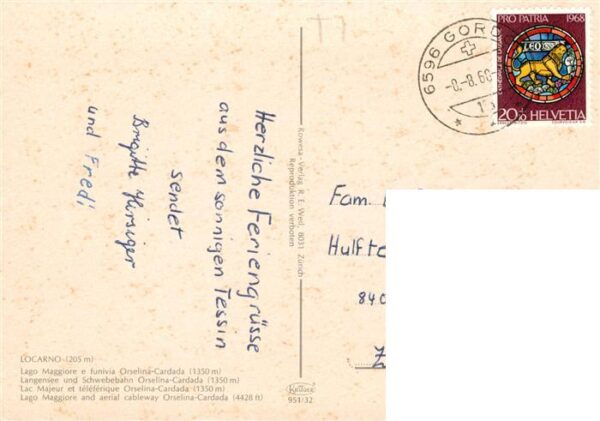 Herzliche Feriengrüsse
aus dem sonnigen Tessin
sendet
Brigitte Hirsiger
und Fredi
Rowesa-Verlag R. E. Weill, 8031 Zürich
Reproduktion verboten
6596 GORD
-8.68
PRO PATRIA 1968
LEO
20+10 HELVETIA
Fam.
Hulfte
840
LOCARNO (205 m)
Lago Maggiore e funivia Orselina-Cardada (1350 m)
Langensee und Schwebebahn Orselina-Cardada (1350 m)
Lac Majeur et téléférique Orselina-Cardada (1350 m)
Lago Maggiore and aerial cableway Orselina-Cardada (4428 ft)
951/32